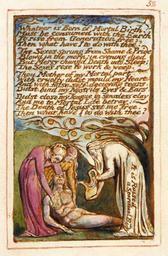 Whate'er is Born of Mortal Birth
Must be consumed with the Earth
To rise from Generation free
Then what have I to do with thee?
The Sexes sprung from Shame & Pride
Blow'd in the morn: in evening died
But Mercy changd Death into Sleep;
The Sexes rose to work & weep
Thou Mother of my Mortal part
With cruelty didst mould my Heart
And with false self-decieving tears
Didst bind my Nostrils Eyes & Ears
Didst close my Tongue in senseless clay
And me to Mortal Life betray:
The Death of Jesus set me free
Then what have I to do with thee?
It is Raised
a Spiritual Body